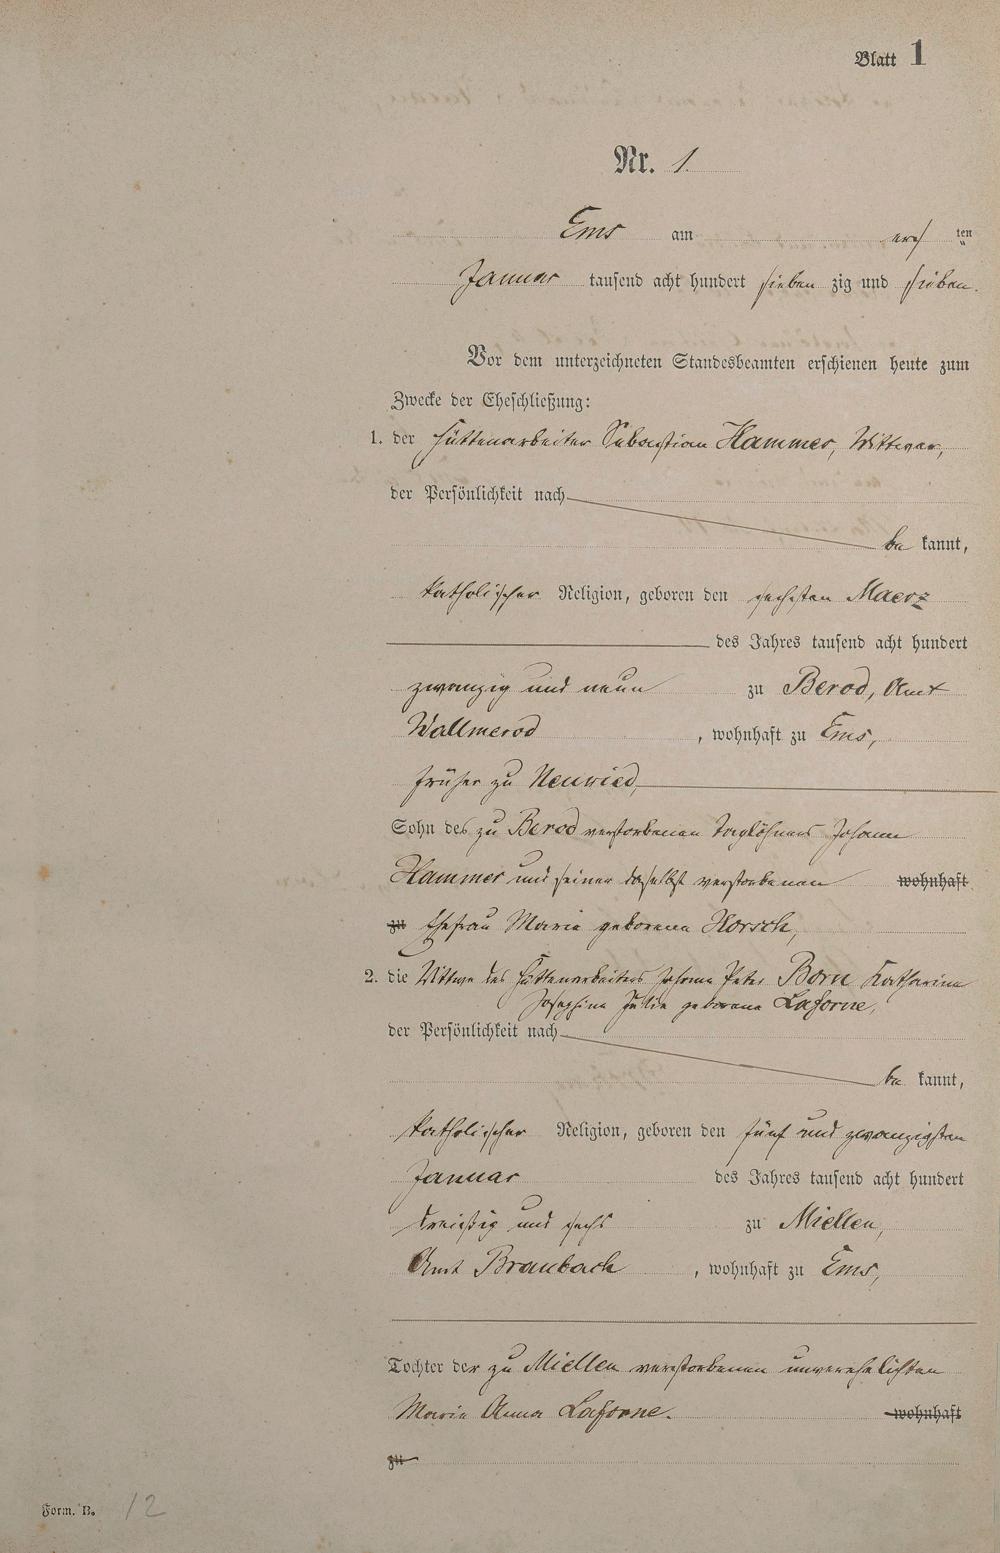 Blatt 1
Nr. 1.
Ems am ersten
Januar tausend acht hundert sieben zig und sieben.
Vor dem unterzeichneten Standesbeamten erschienen heute zum
Zwecke der Eheschließung:
1. der Hüttenarbeiter Sebastian Hammer, Wittwer,
der Persönlichkeit nach
be kannt,
katholischer Religion, geboren den sechsten Maerz
des Jahres tausend acht hundert
zwanzig und neun zu Berod, Amt
Wallmerod, wohnhaft zu Ems,
früher zu Neuwied,
Sohn des zu Berod verstorbenen Taglöhners Johann
Hammer und seiner daselbst verstorbenen wohnhaft
zu Ehefrau Maria geborene Horsch,
2. die Wittwe des Hüttenarbeiters Johann Peter Born Katharina
Josephina Julia geborene Laforne,
der Persönlichkeit nach
be kannt,
katholischer Religion, geboren den fünf und zwanzigsten
Januar des Jahres tausend acht hundert
dreißig und sechs zu Miellen,
Amt Braubach, wohnhaft zu Ems,
Tochter der zu Miellen verstorbenen unverehelichten
Maria Anna Laforne. wohnhaft
zu
Form. B. 12